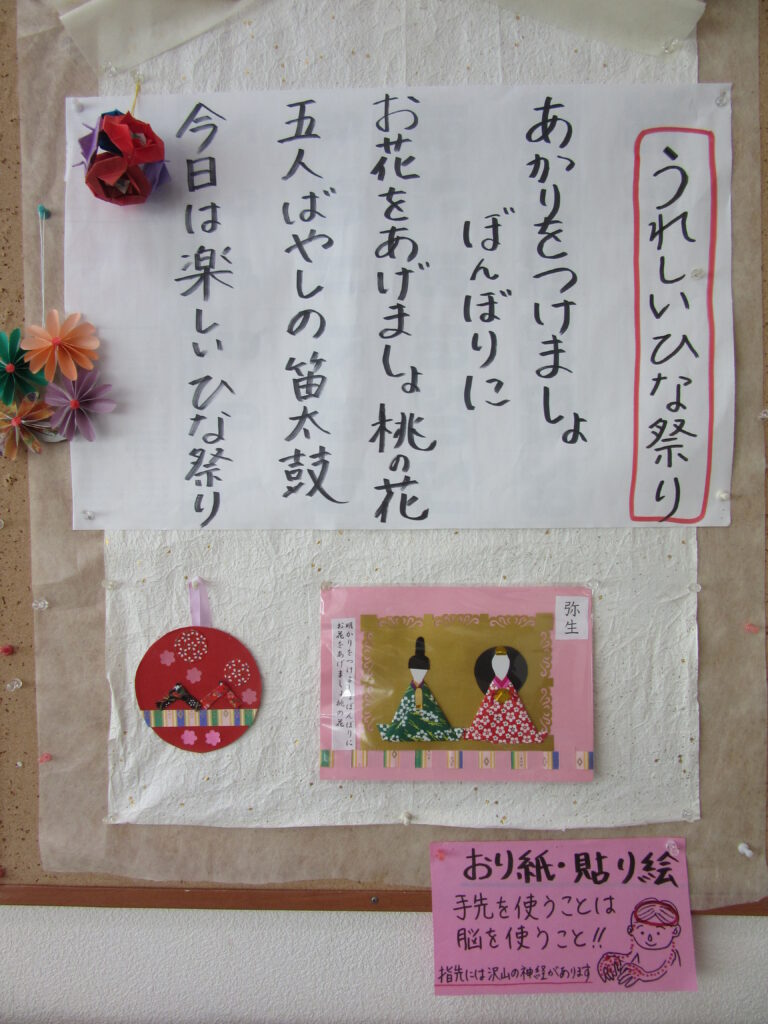 うれしいひな祭り
あかりをつけましょ
ぼんぼりに
お花をあげましょ桃の花
五人ばやしの笛太鼓
今日は楽しいひな祭り
弥生
明かりをつけましょぼんぼりに
お花をあげましょ桃の花
おり紙・貼り絵
手先を使うことは
脳を使うこと!!
指先には沢山の神経があります